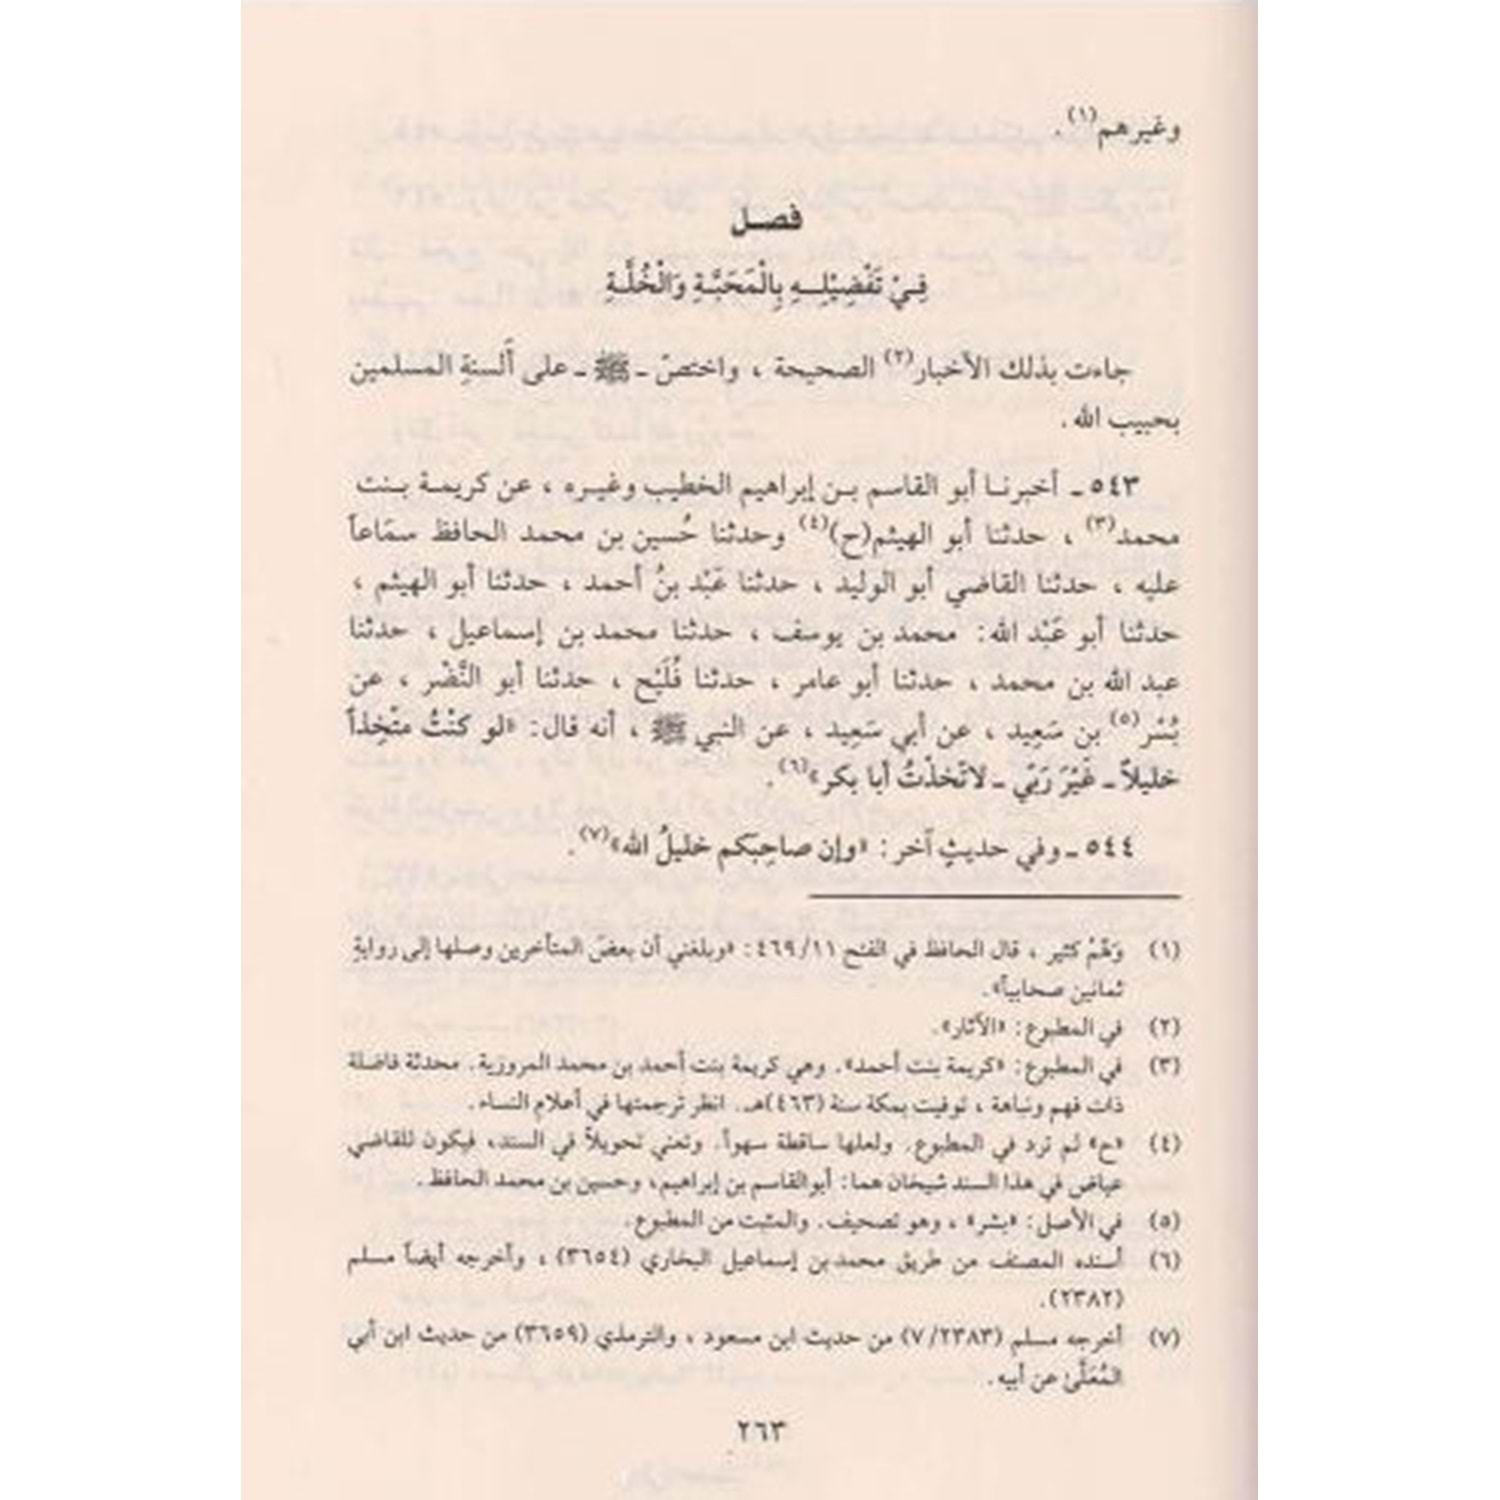 وغيرهم(١).
فصـل
فِيْ تَفْضِيْلِـهِ بِالْمَحَبَّـةِ وَالْخُلَّـةِ
جاءت بذلك الأخبار(٢) الصحيحة ، واختصّ ـ ﷺ ـ على ألسنةِ المسلمين
بحبيب الله .
٥٤٣ ـ أخبرنـا أبو القاسم بـن إبراهيم الخطيب وغيـره ، عن كريمـة بـنت
محمد(٣) ، حدثنا أبو الهيثم(ح)(٤) وحدثنا حُسين بن محمد الحافظ سمَاعاً
عليه ، حدثنا القاضي أبو الوليد ، حدثنا عَبْد بنُ أحمد ، حدثنا أبو الهيثم ،
حدثنا أبو عَبْد الله: محمد بن يوسف ، حدثنا محمد بن إسماعيل ، حدثنا
عبد الله بن محمد ، حدثنا أبو عامر ، حدثنا فُلَيْح ، حدثنا أبو النَّضْر ، عن
بُسْر(٥) بن سَعِيد ، عن أبي سَعِيد ، عن النبي ﷺ ، أنه قال: «لو كنْتُ متّخِذاً
خليلاً ـ غَيْرَ رَبّي ـ لاتّخذْتُ أبا بكر»(٦).
٥٤٤ ـ وفي حديثٍ آخر: «وإن صاحِبَكم خليلُ الله»(٧).
(١) وَهُمْ كثير ، قال الحافظ في الفتح ٤٦٩/١١: «وبلغني أن بعضَ المتأخرين وصلها إلى روايةِ
ثمانين صحابياً».
(٢) في المطبوع: «الآثار».
(٣) في المطبوع: «كريمة بنت أحمد». وهي كريمة بنت أحمد بن محمد المروزية. محدثة فاضلة
ذات فهم ونباهة ، توفيت بمكة سنة (٤٦٣)هـ. انظر ترجمتها في أعلام النساء.
(٤) «ح» لم ترد في المطبوع. ولعلها ساقطة سهواً. وتعني تحويلاً في السند، فيكون للقاضي
عياض في هذا السند شيخان هما: أبوالقاسم بن إبراهيم، وحسين بن محمد الحافظ.
(٥) في الأصل: «بشر» ، وهو تصحيف. والمثبت من المطبوع.
(٦) أسنده المصنف من طريق محمد بن إسماعيل البخاري (٣٦٥٤) ، وأخرجه أيضاً مسلم
(٢٣٨٢).
(٧) أخرجه مسلم (٧/٢٣٨٣) من حديث ابن مسعود ، والترمذي (٣٦٥٩) من حديث ابن أبي
المُعَلَّىٰ عن أبيه.
٢٦٣